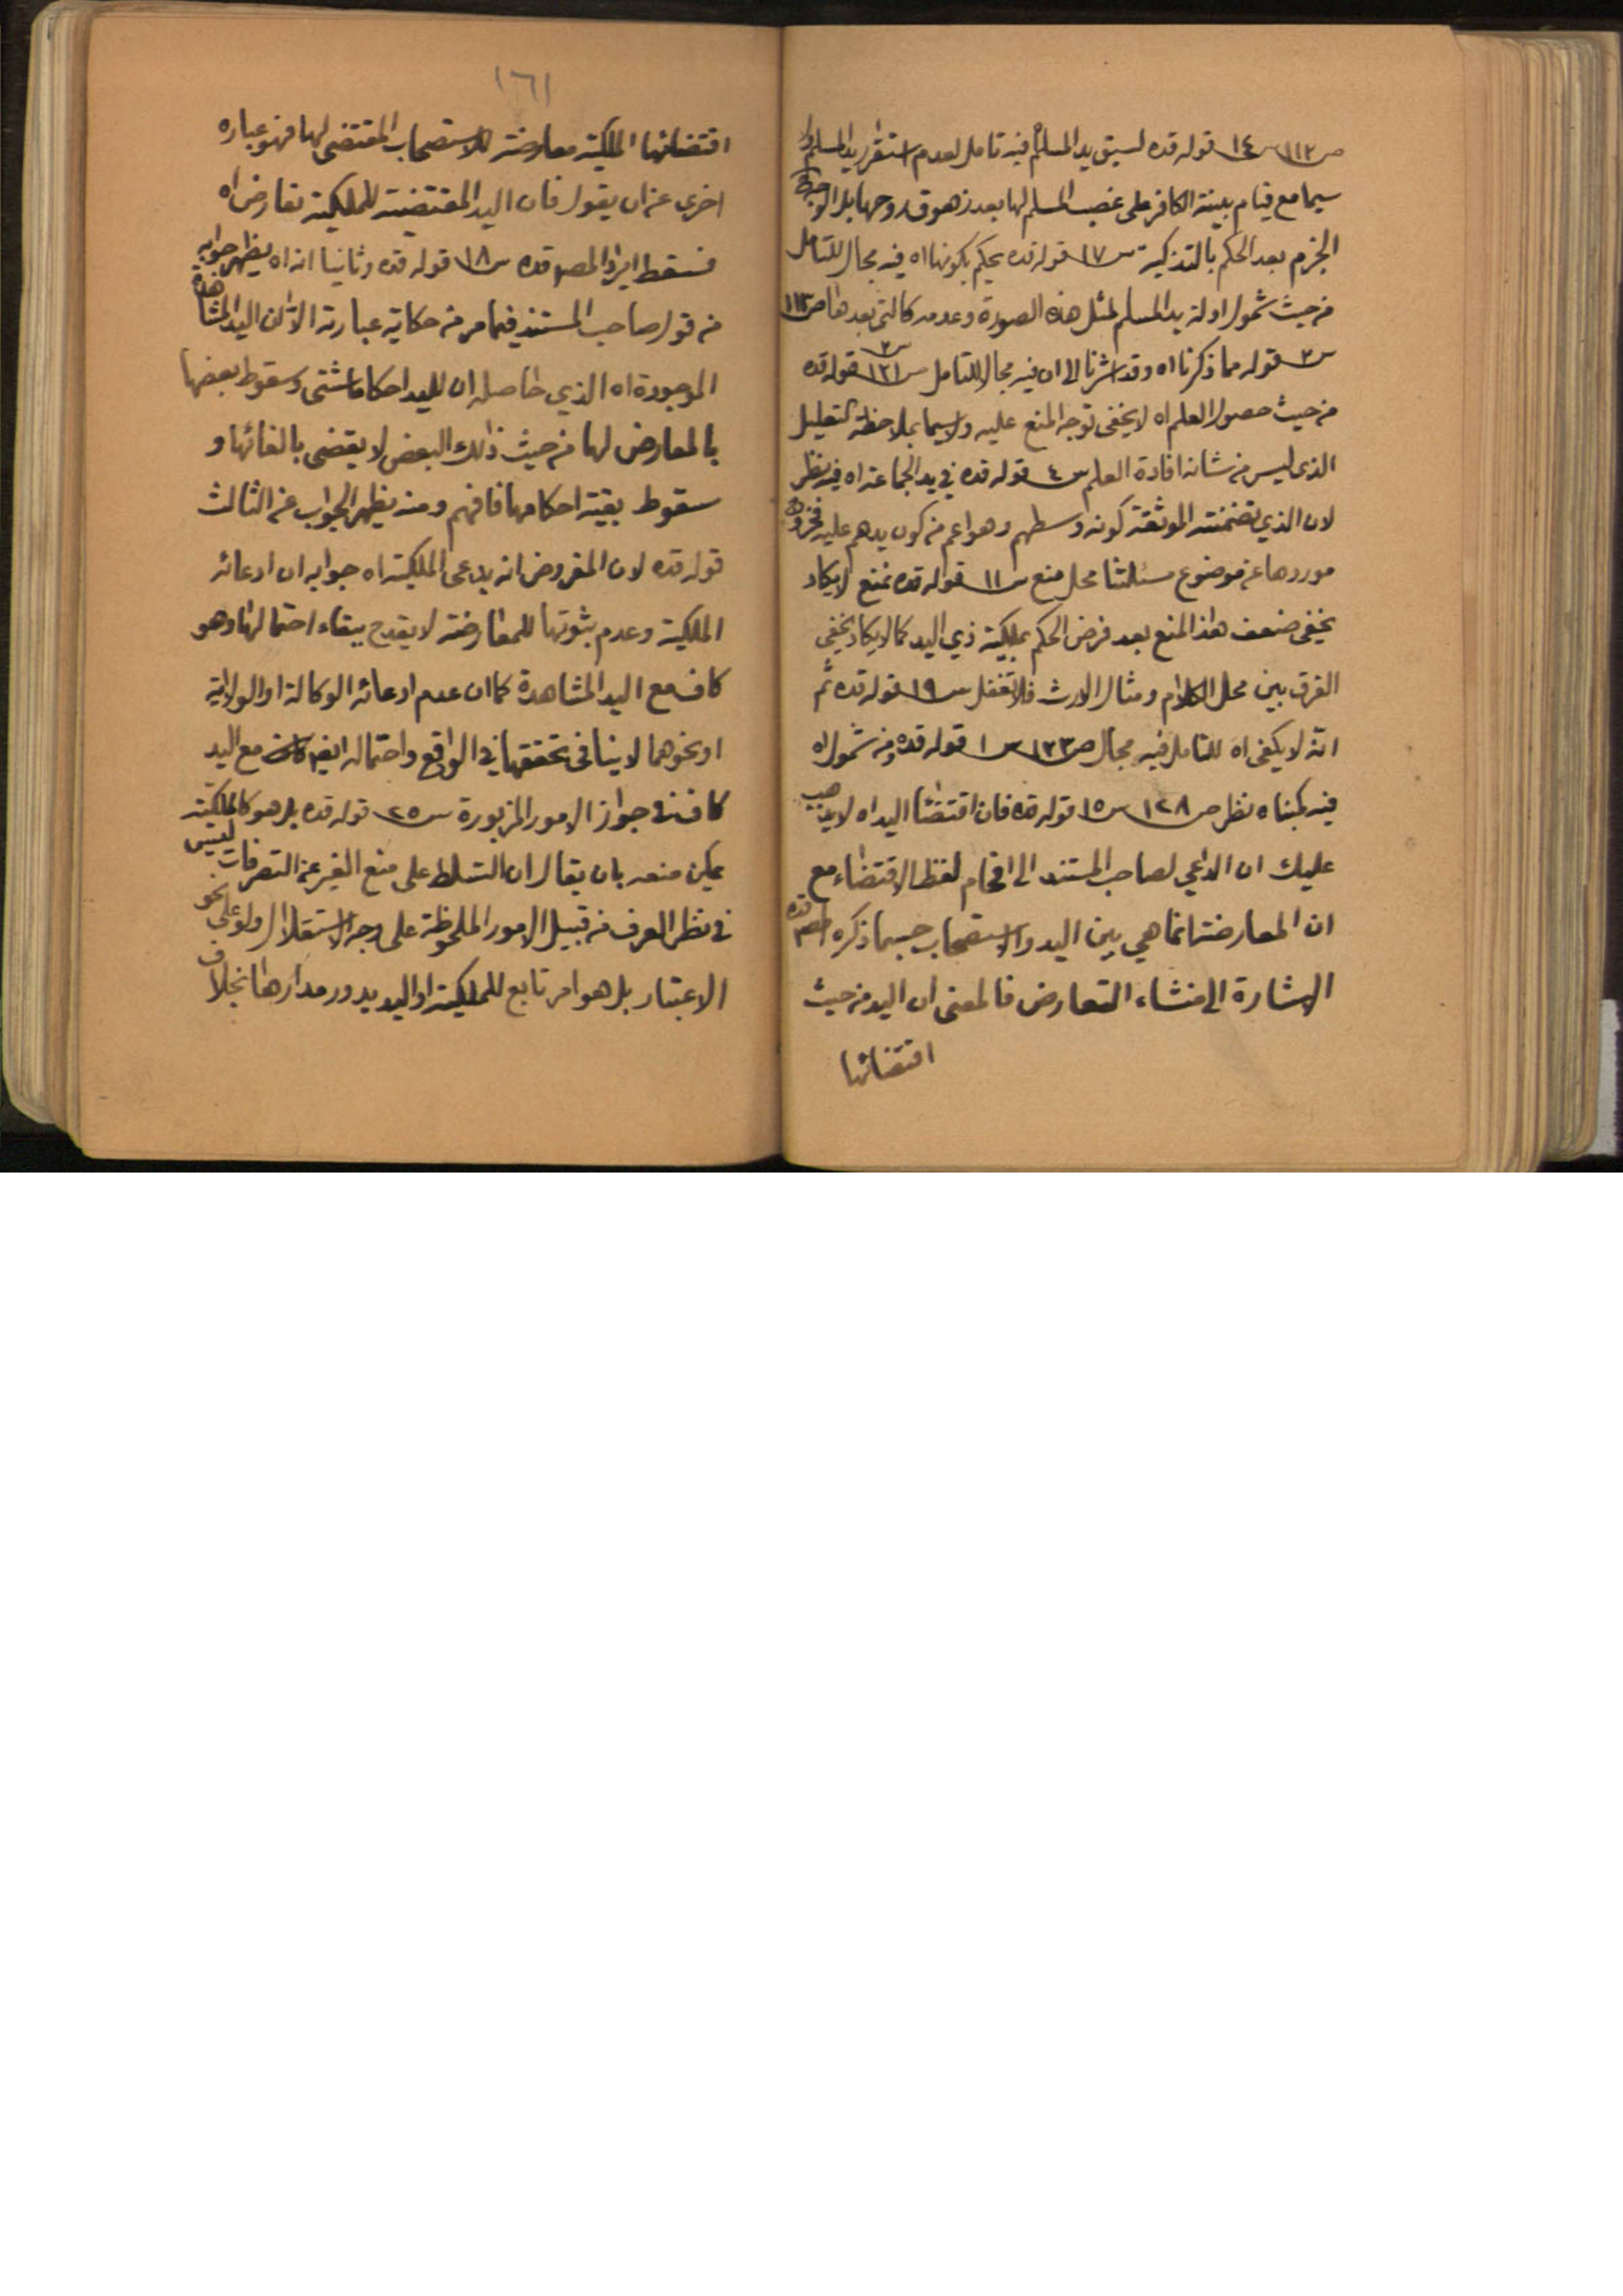 ص١١٢ س١٤ قوله قده لسبق يد المسلم فيه تامل لعدم استقرار يد المسلم ولا
سيما مع قيام بينة الكافر على غصب المسلم لها بعد زهوق روحها بل الوجه
الجزم بعد الحكم بالتذكية س١٧ قوله قده يحكم بكونها اه فيه مجال للتامل
من حيث شمول ادلة يد المسلم لمثل هذه الصورة وعدمه كالتي بعدها ص١١٣
س٢ قوله مما ذكرنا اه وقد اشرنا الى ان فيه مجالا للتامل ص١٢١ س٣ قوله قده
من حيث حصول العلم اه لا يخفى توجه المنع عليه ولا سيما بملاحظة التعليل
الذي ليس من شانه افادة العلم س٤ قوله قده في يد الجماعة اه فيه نظر
لان الذي تضمنته الموثقة كونه وسطهم وهو اعم من كون يدهم عليه فخروج
موردها عن موضوع مسئلتنا محل منع س١١ قوله قده نمنع لا يكاد
يخفى ضعف هذا المنع بعد فرض الحكم بملكية ذي اليد كما لا يكاد يخفى
الفرق بين محل الكلام ومثال الارث فلا تغفل س١٩ قوله قده ثم
انه لا يكفى اه للتامل فيه مجال ص١٢٣ س١ قوله قده ومن شموله
فيه كمبناه نظر ص١٢٨ س١٥ قوله قده فان اقتضاء اليد اه لا يذهب
عليك ان الداعي لصاحب المستند الى اقحام لفظ الاقتضاء مع
ان المعارضة انما هي بين اليد والاستصحاب حسبما ذكره المصم قده
الاشارة الى منشاء التعارض فالمعنى ان اليد من حيث
اقتضائها
١٦١
اقتضائها الملكية معارضة للاستصحاب المقتضى لها فهو عباره
اخرى عن ان يقول فان اليد المقتضية للملكية تعارض اه
فسقط ايراد المصم قده س١٨ قوله قده وثانيا انه اه يظهر جوابه
من قول صاحب المستند فيما مر من حكاية عبارته الا ان اليد المشاهدة
الموجودة اه الذي حاصله ان لليد احكاما شتى وسقوط بعضها
بالمعارض لها من حيث ذلك البعض لا يقضى بالغائها و
سقوط بقية احكامها فافهم ومنه يظهر الجواب عن الثالث
قوله قده لان المفروض انه يدعى الملكية اه جوابه ان ادعائه
الملكية وعدم ثبوتها للمعارضة لا يقدح ببقاء احتمالها وهو
كاف مع اليد المشاهدة كما ان عدم ادعائه الوكالة او الولاية
او نحوهما لا ينافى تحققها في الواقع واحتماله ايضا كاف مع اليد
كاف في جواز الامور المزبورة س٢٥ قوله قده بل هو كالملكية
يمكن منعه بان يقال ان التسلط على منع الغير عن التصرفات ليس
في نظر العرف من قبيل الامور الملحوظة على وجه الاستقلال ولو على نحو
الاعتبار بل هو امر تابع للملكية او اليد يدور مدارها بخلاف